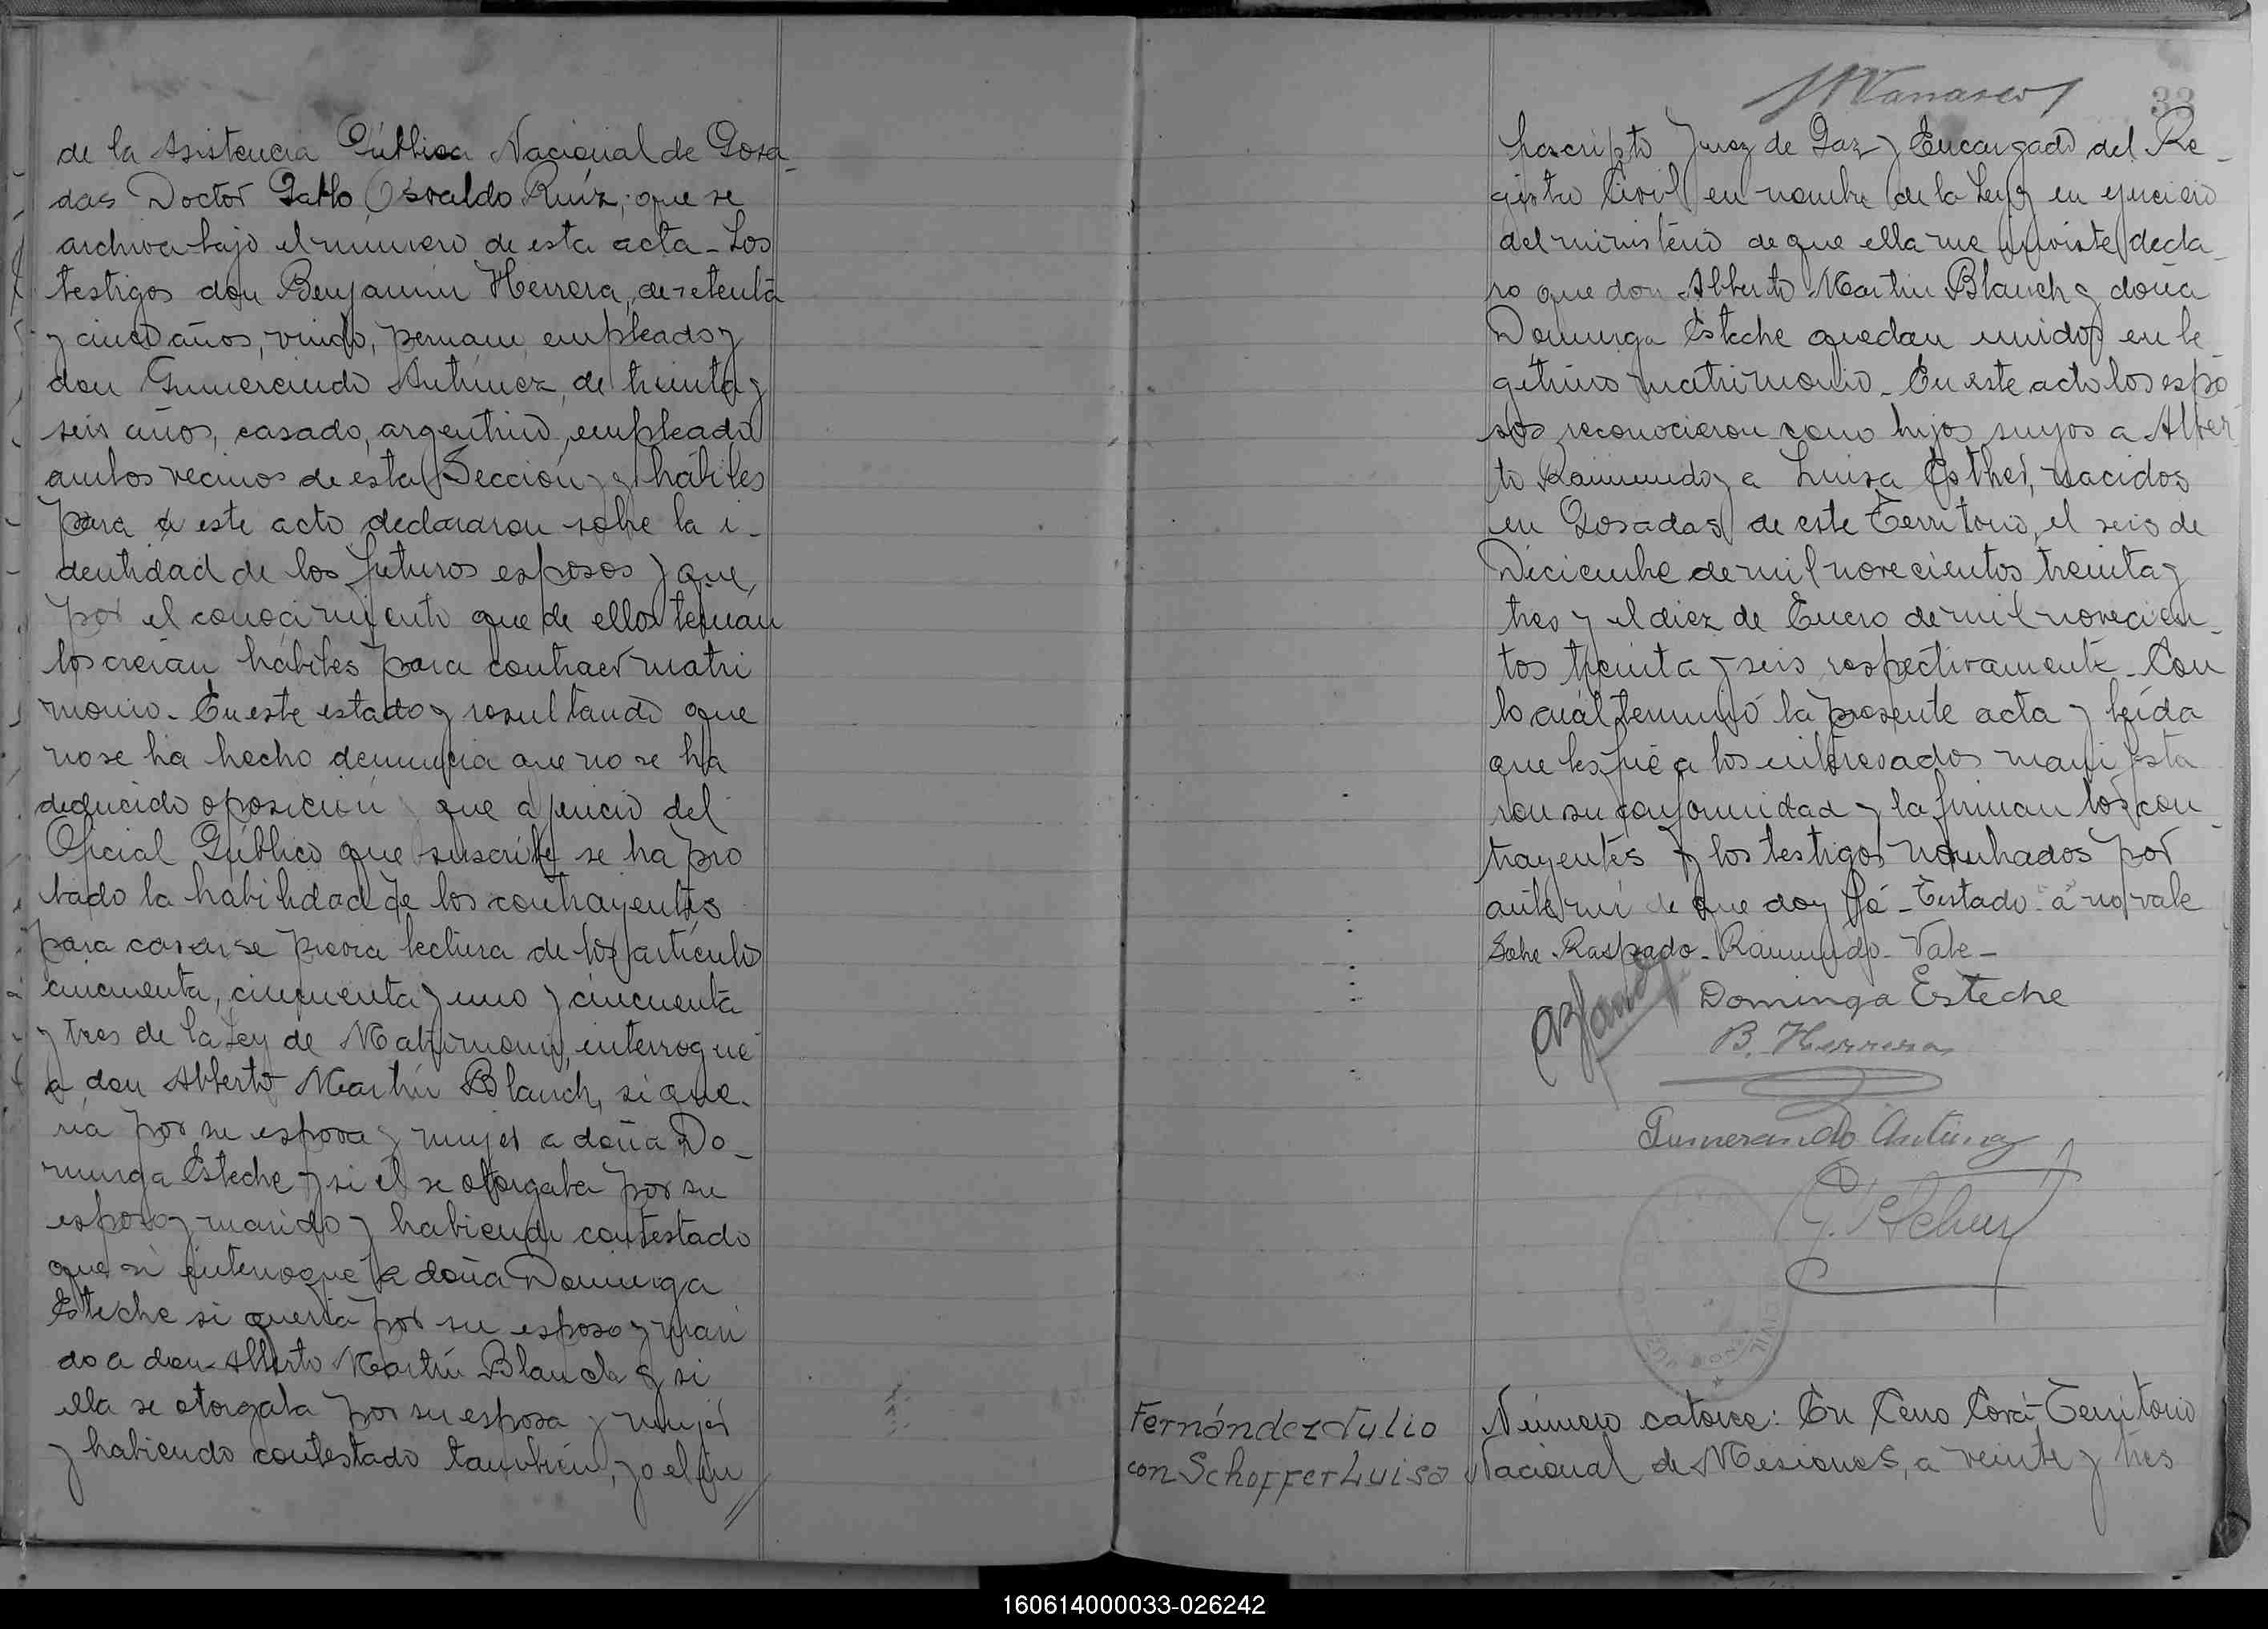 de la Asistencia Pública Nacional de Posa-
das Doctor Pablo Osvaldo Ruíz, que se
archiva bajo el numero de esta acta - Los
testigos don Benjamin Herrera, de setenta
y cinco años, viudo, peruano, empleado y
don Gumercindo Antunez, de treinta y
seis años, casado, argentino, empleado
ambos vecinos de esta Sección y hábiles
para este acto declararon sobre la i-
dentidad de los futuros esposos y que,
por el conocimiento que de ellos tenían
los creían hábiles para contraer matri
monio - En este estado y resultando que
no se ha hecho denuncia que no se ha
deducido oposición y que a juicio del
Oficial Público que suscribe se ha pro
bado la habilidad de los contrayentes
para casarse previa lectura de los artículos
cincuenta, cincuenta y uno y cincuenta
y tres de la Ley de Matrimonio, interrogué
a don Alberto Martín Blanch, si que-
ría por su esposa y mujer a doña Do-
minga Esteche y si él se otorgaba por su
esposo y marido y habiendo contestado
que si interrogué a doña Dominga
Esteche si quería por su esposo y mari
do a don Alberto Martín Blanch y si
ella se otorgaba por su esposa y mujer
y habiendo contestado también, yo el in
33
frascripto Juez de Paz y Encargado del Re-
gistro Civil en nombre de la Ley y en ejercicio
del ministerio de que ella me inviste decla-
ro que don Alberto Martin Blanch y doña
Dominga Esteche quedan unidos en le-
gítimo matrimonio - En este acto los espo
sos reconocieron como hijos suyos a Alber
to Raimundo y a Luisa Esther, nacidos
en Posadas de este Territorio, el seis de
Diciembre de mil novecientos treinta y
tres y el diez de Enero de mil novecien-
tos treinta y seis respectivamente - Con
lo cuál terminó la presente acta y leída
que les fué a los interesados manifesta
ron su conformidad y la firman los con-
trayentes y los testigos nombrados por
ante mí de que doy fé - Testado "a" no vale
Sobre Raspado - Raimundo - Vale -
Dominga Esteche
B. Herrera
Gumercindo Antunez
Fernández Julio
con Schoffer Luisa
Número catorce: En Cerro Corá - Territorio
Nacional de Misiones, a veinte y tres
160614000033-026242